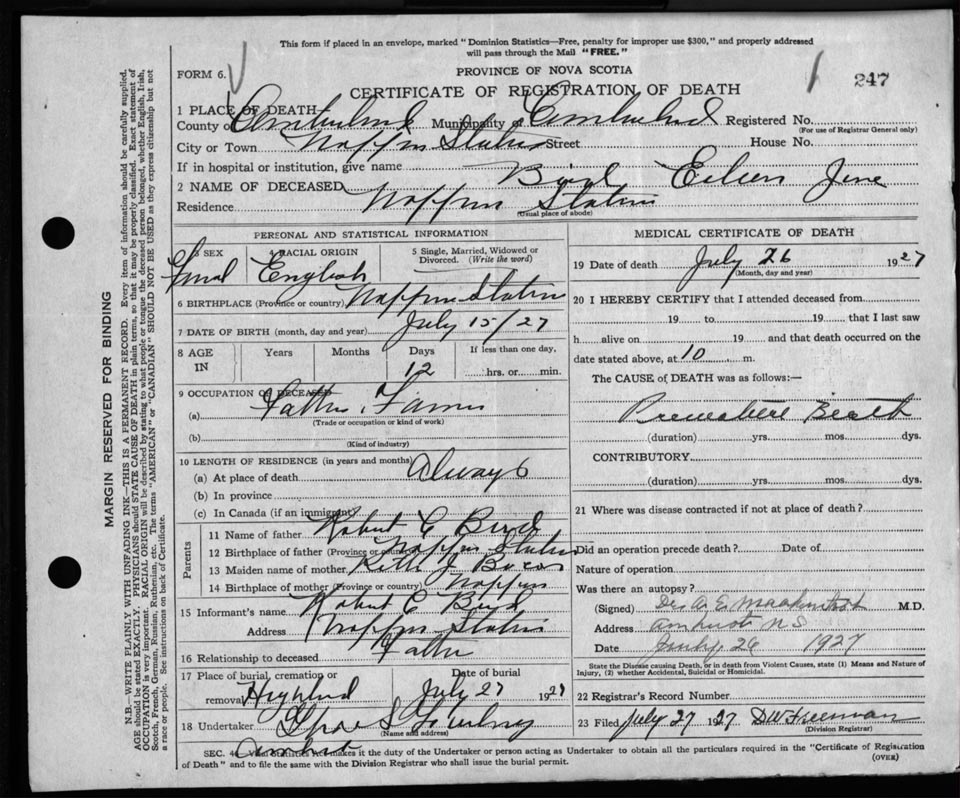 This form if placed in an envelope, marked "Dominion Statistics—Free, penalty for improper use $300," and properly addressed
will pass through the Mail "FREE."
FORM 6.
PROVINCE OF NOVA SCOTIA
247
CERTIFICATE OF REGISTRATION OF DEATH
1 PLACE OF DEATH
County of Cumberland Municipality of Cumberland Registered No.
(For use of Registrar General only)
City or Town Nappan Station Street House No.
If in hospital or institution, give name
2 NAME OF DECEASED Bird Eileen
Residence Nappan Station
(Usual place of abode)
PERSONAL AND STATISTICAL INFORMATION
3 SEX 4 RACIAL ORIGIN 5 Single, Married, Widowed or
Divorced. (Write the word)
Femal English
6 BIRTHPLACE (Province or country) Nappan Station
7 DATE OF BIRTH (month, day and year) July 15/27
8 AGE Years Months Days If less than one day,
IN 12 hrs. or min.
9 OCCUPATION OF DECEASED
(a) Father Farmer
(Trade or occupation or kind of work)
(b)
(Kind of industry)
10 LENGTH OF RESIDENCE (in years and months)
(a) At place of death Always
(b) In province
(c) In Canada (if an immigrant)
Parents
11 Name of father Robert C Bird
12 Birthplace of father (Province or country) Nappan Station
13 Maiden name of mother
14 Birthplace of mother (Province or country) Nappan
15 Informant's name Robert C Bird
Address Nappan Station
16 Relationship to deceased Father
17 Place of burial, cremation or Date of burial
removal Highland July 27 1927
18 Undertaker
(Name and address)
Amherst
MEDICAL CERTIFICATE OF DEATH
19 Date of death July 26 1927
(Month, day and year)
20 I HEREBY CERTIFY that I attended deceased from
19 to 19 that I last saw
h alive on 19 and that death occurred on the
date stated above, at 10 m.
The CAUSE of DEATH was as follows:—
Premature Birth
(duration) yrs. mos. dys.
CONTRIBUTORY
(duration) yrs. mos. dys.
21 Where was disease contracted if not at place of death?
Did an operation precede death? Date of
Nature of operation
Was there an autopsy?
(Signed) M.D.
Address Amherst N S
Date July 26 1927
State the Disease causing Death, or in death from Violent Causes, state (1) Means and Nature of
Injury, (2) whether Accidental, Suicidal or Homicidal.
22 Registrar's Record Number
23 Filed July 27 1927 D W Freeman
(Division Registrar)
SEC. makes it the duty of the Undertaker or person acting as Undertaker to obtain all the particulars required in the "Certificate of Registration
of Death" and to file the same with the Division Registrar who shall issue the burial permit.
(OVER)
MARGIN RESERVED FOR BINDING
N.B.—WRITE PLAINLY WITH UNFADING INK—THIS IS A PERMANENT RECORD. Every item of information should be carefully supplied.
AGE should be stated EXACTLY. PHYSICIANS should STATE CAUSE OF DEATH in plain terms, so that it may be properly classified. Exact statement of
OCCUPATION is very important. RACIAL ORIGIN will be described by stating to what people or tongue the deceased person belonged, whether English, Irish,
Scotch, French, German, Russian, Ruthenian, etc. The terms "AMERICAN" or "CANADIAN" SHOULD NOT BE USED as they express citizenship but not
a race or people. See instructions on back of Certificate.